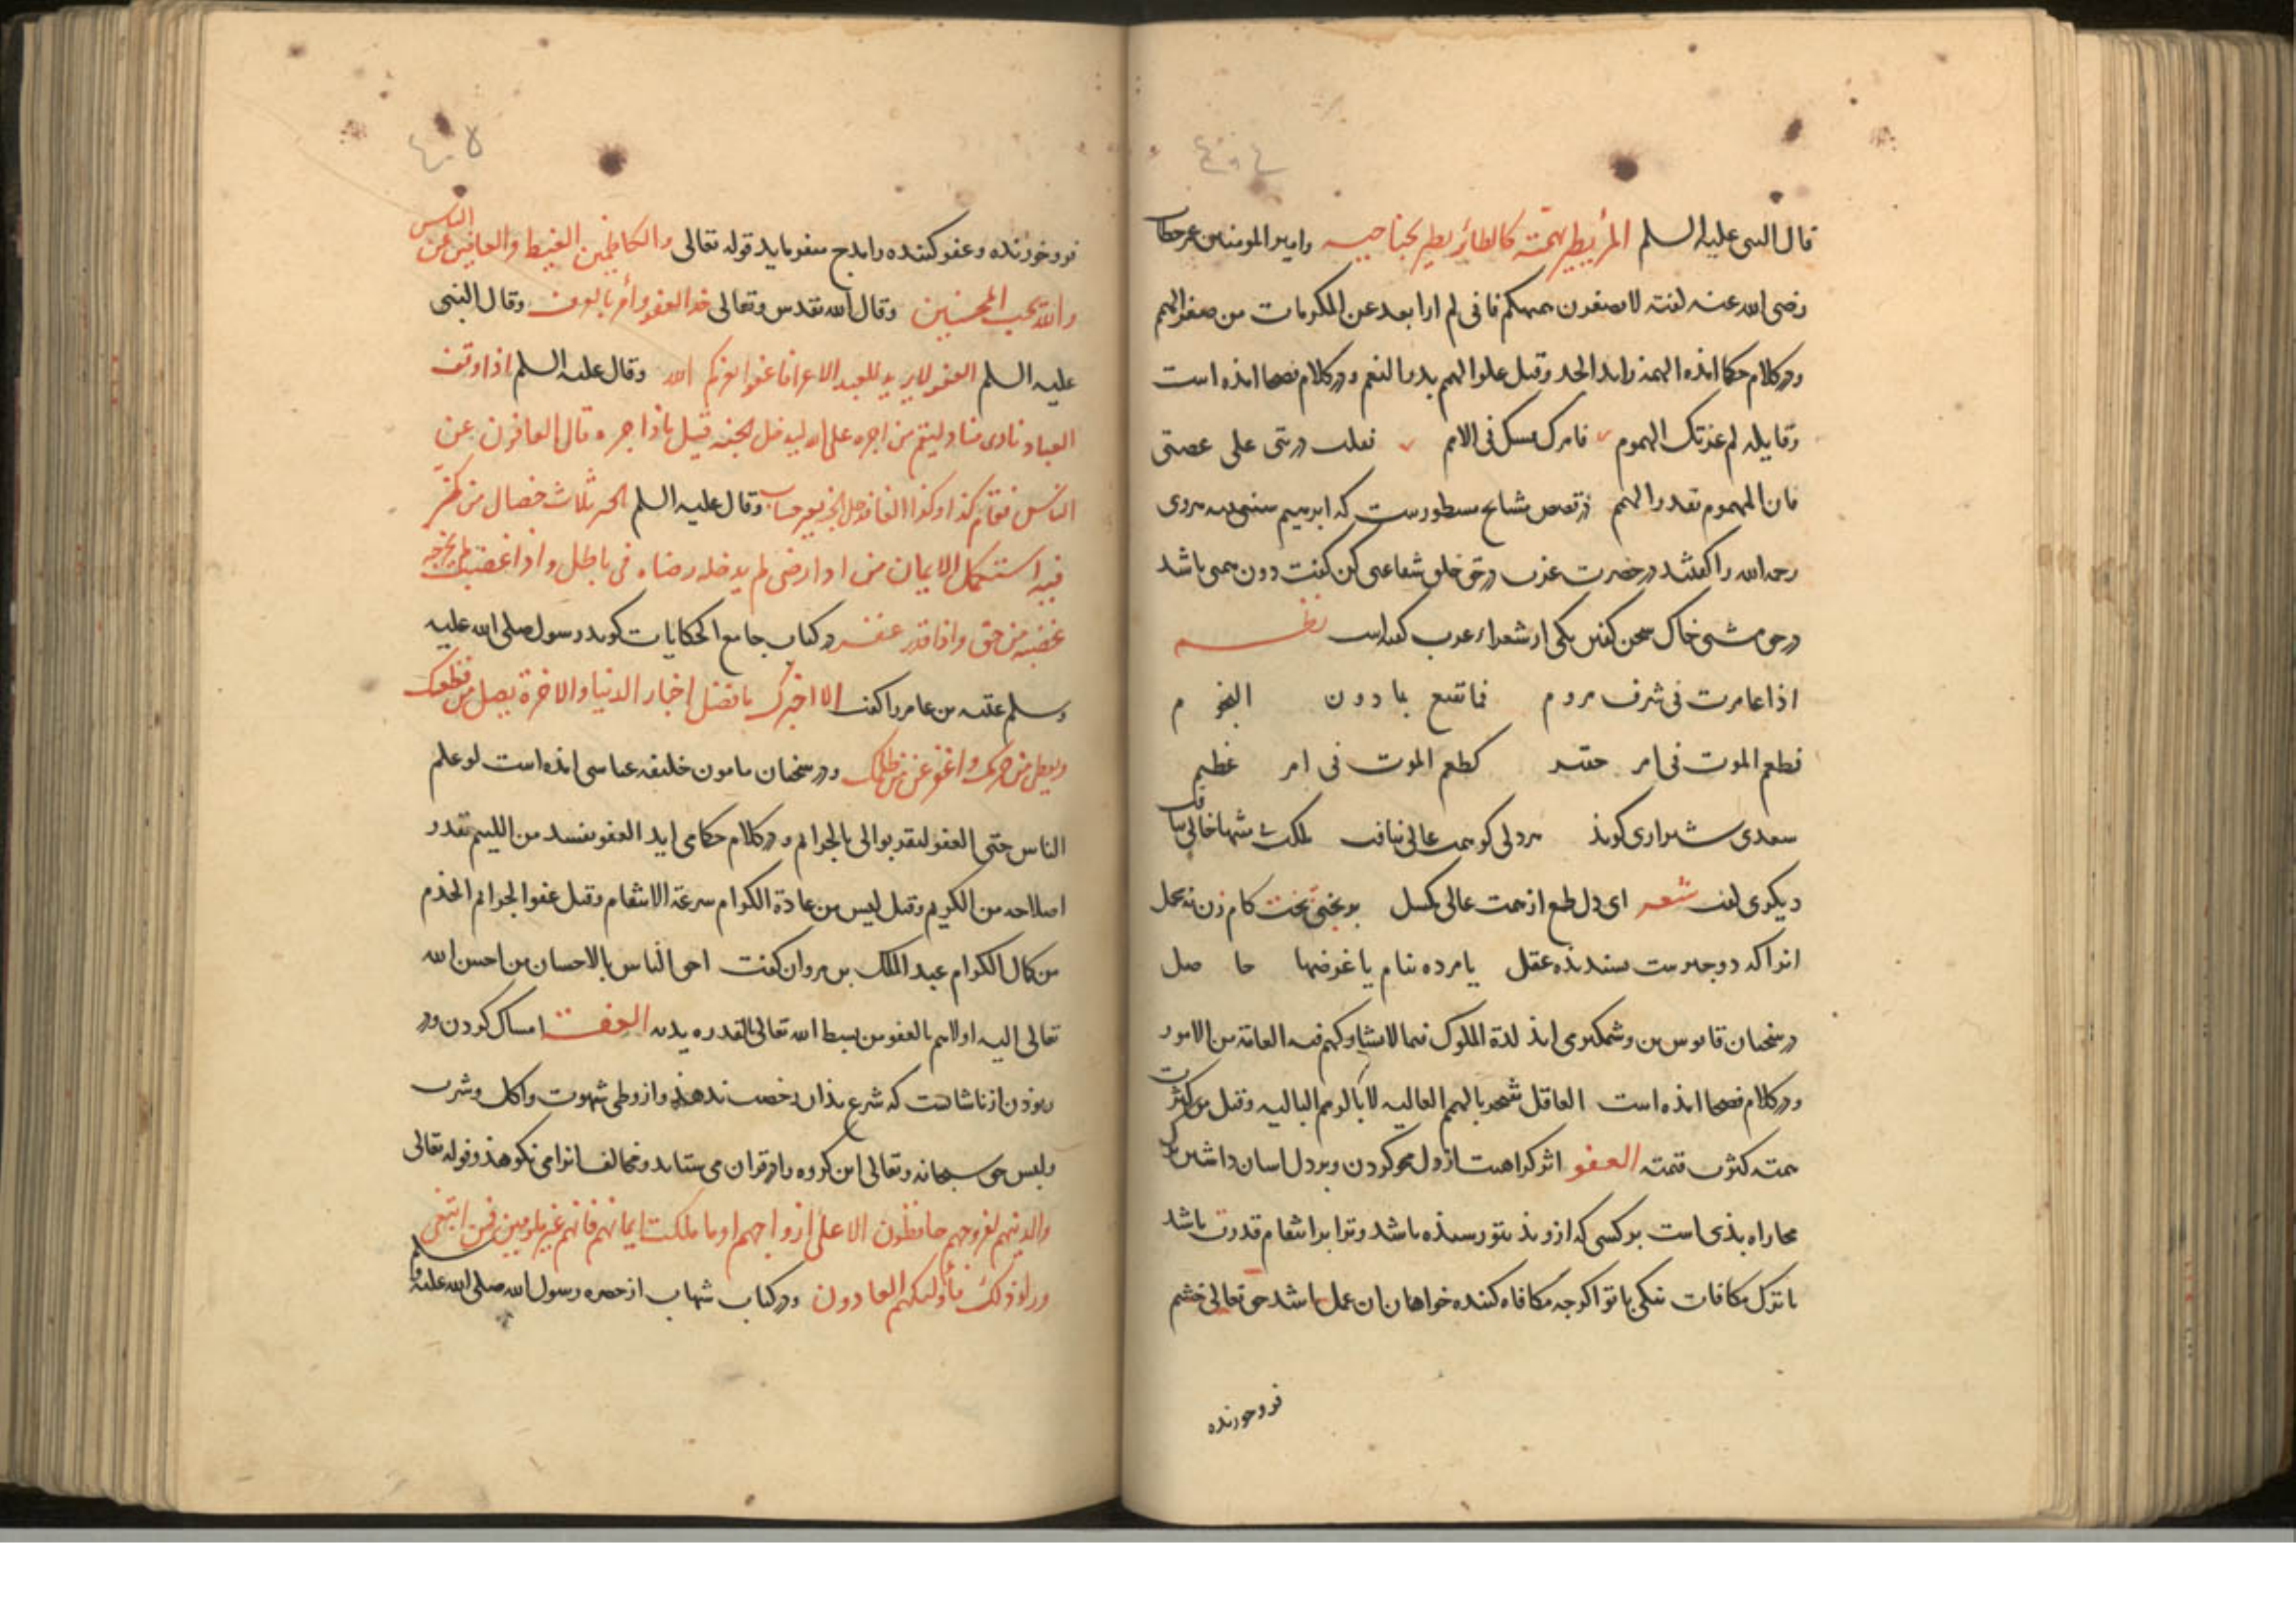 ٤٠٤
قال النبی علیه السلم المرء یطیر بهمته کالطائر یطیر بجناحیه وامیر المومنین عمر خطاب
رضی الله عنه گفته لا تصغرن هممکم فانی لم ار ابعد عن المکرمات من صغر الهمم
و در کلام حکما امده الهمة راید الجد وقیل علو الهمم بذر النعم و در کلام فصحا امده است
وقایلة لم عرتک الهموم وامرک ممتثل فی الامم فقلت ذرینی علی غصتی
فان الهموم بقدر الهمم در قصص مشایخ مسطورست که ابرهیم
رحمه الله را گفتند در حضرت عزت در حق خلق شفاعتی کن گفت دون همتی باشد
در حق مشتی خاک سخن گفتن یکی از شعراء عرب گفته است نظم
اذا غامرت فی شرف مروم فما تقنع بما دون النجوم
فطعم الموت فی امر حقیر کطعم الموت فی امر عظیم
سعدی شیرازی گوید هر دلی کو همت عالی نیافت ملکت بی منتها خالی نیافت
دیگری گفت شعر ای دل طمع از همت عالی مگسل بر بختی بخت کام زن نه بحل
انرا که دو چیز هست پسندیده عقل یا مرده بنام یا غرضها حاصل
در سخنان قابوس بن وشمگیر می اید لذة الملوک فیما لا یشارکهم فیه العامة من الامور
و در کلام فصحا امده است العاقل یفتخر بالهمم العالیه لا بالرمم البالیه وقیل من کثرت
همته کثرت قیمته العفو اثر کراهیت از دل محو کردن و بر دل اسان داشتن ترک
مجاراه بذی است بر کسی که ازو بذ بتو رسیذه باشد و ترا بر انتقام قدرت باشد
با ترک مکافات نیکی با تو اگرچه مکافاه کننده خواهان ان عمل باشد حق تعالی خشم
فروخورنده
٤٠٥
فروخورنده و عفو کننده را مدح میفرماید قوله تعالی والکاظمین الغیظ والعافین عن الناس
والله یحب المحسنین وقال الله تقدس وتعالی خذ العفو وأمر بالعرف وقال النبی
علیه السلم العفو لا یزید للعبد الا عزا فاعفوا یعزکم الله وقال علیه السلم اذا وقف
العباد نادی مناد لیقم من اجره علی الله لیدخل الجنه قیل من ذا اجره قال العافون عن
الناس فقام کذا وکذا الفا فدخل الجنة بغیر حساب وقال علیه السلم ثلاث خصال من کن
فیه استکمل الایمان من اذا رضی لم یدخله رضاه فی باطل واذا غضب لم یخرجه
غضبه من حق واذا قدر عفا در کتاب جامع الحکایات گوید رسول صلی الله علیه
وسلم عقبه بن عامر را گفت الا اخبرک بافضل اخیار الدنیا والاخرة یصل من قطعک
ویعطی من حرمک واعف عن من ظلمک و در سخنان مامون خلیفه عباسی امده است لو علم
الناس حبی العفو لتقربوا الی بالجرایم و در کلام حکما می اید العفو یفسد من اللئیم بقدر
اصلاحه من الکریم وقیل لیس من عادة الکرام سرعة الانتقام وقیل عفو الجرائم
من کمال الکرام عبد الملک بن مروان گفت احق الناس بالاحسان من احسن الله
تعالی الیه اولاهم بالعفو من بسط الله تعالی بالقدره یدیه العفت امساک کردن و دور
بودن از ناشایست که شرع بذان رخصت ندهد و از وطی شهوت و اکل و شرب
ولبس حق سبحانه وتعالی این گروه را در قران می ستاید و مخالف انرا می نکوهد قوله تعالی
والذین هم لفروجهم حافظون الا علی ازواجهم او ما ملکت ایمانهم فانهم غیر ملومین فمن ابتغی
وراء ذلک فأولئک هم العادون و در کتاب شهاب از حضره رسول الله صلی الله علیه وسلم